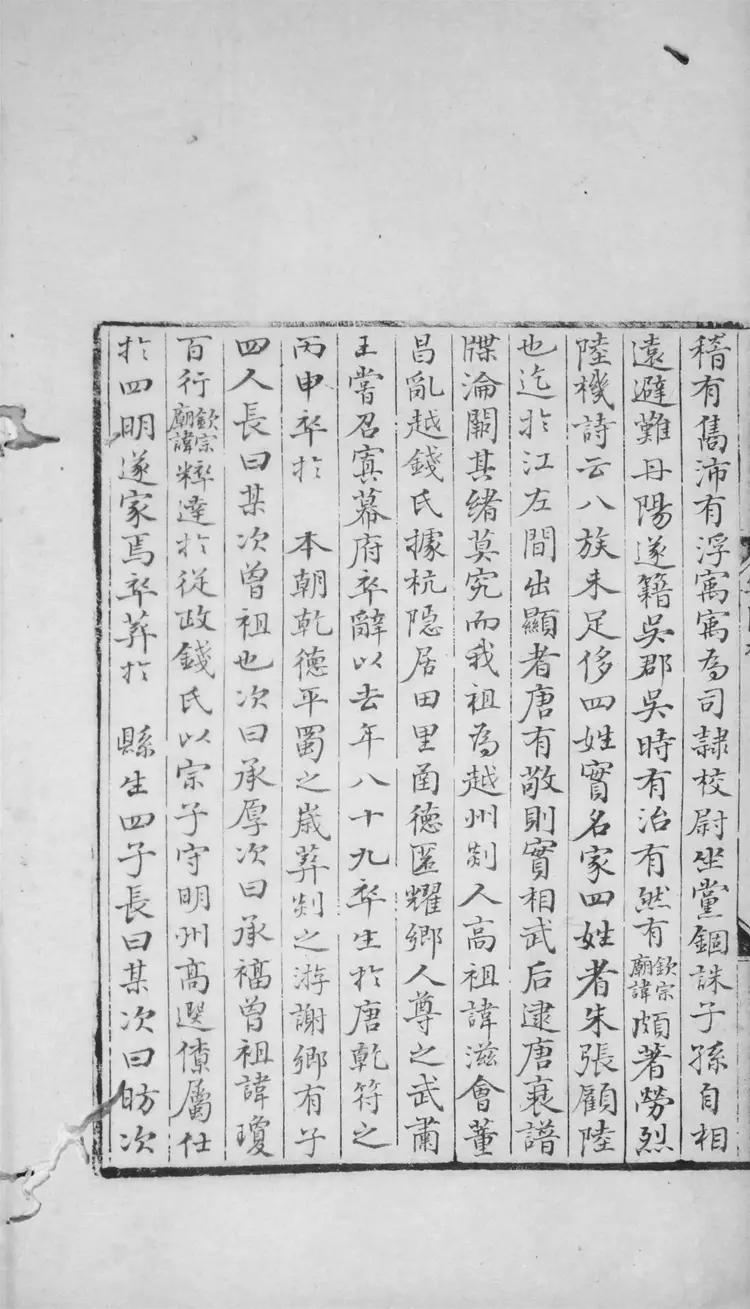 稽有雋沛有浮寓寓為司隷校尉坐黨錮誅子孫自相
遠避難丹陽遂籍吳郡吳時有治有然有欽宗廟諱頗著勞烈
陸機詩云八族未足侈四姓實名家四姓者朱張顧陸
也迄扵江左間出顯者唐有敬則實相武后逮唐衰譜
牒淪闕其緒莫究而我祖為越州剡人高祖諱滋會董
昌亂越錢氏據杭隱居田里畜德匿耀鄉人尊之武肅
王嘗召寘幕府卒辭以去年八十九卒生扵唐乾符之
丙申卒扵 本朝乾德平蜀之歲葬剡之游謝鄉有子
四人長曰某次曾祖也次曰承厚次曰承福曾祖諱瓊
百行欽宗廟諱粹達扵從政錢氏以宗子守明州高選僚屬仕
扵四明遂家焉卒葬扵 縣生四子長曰某次曰昉次